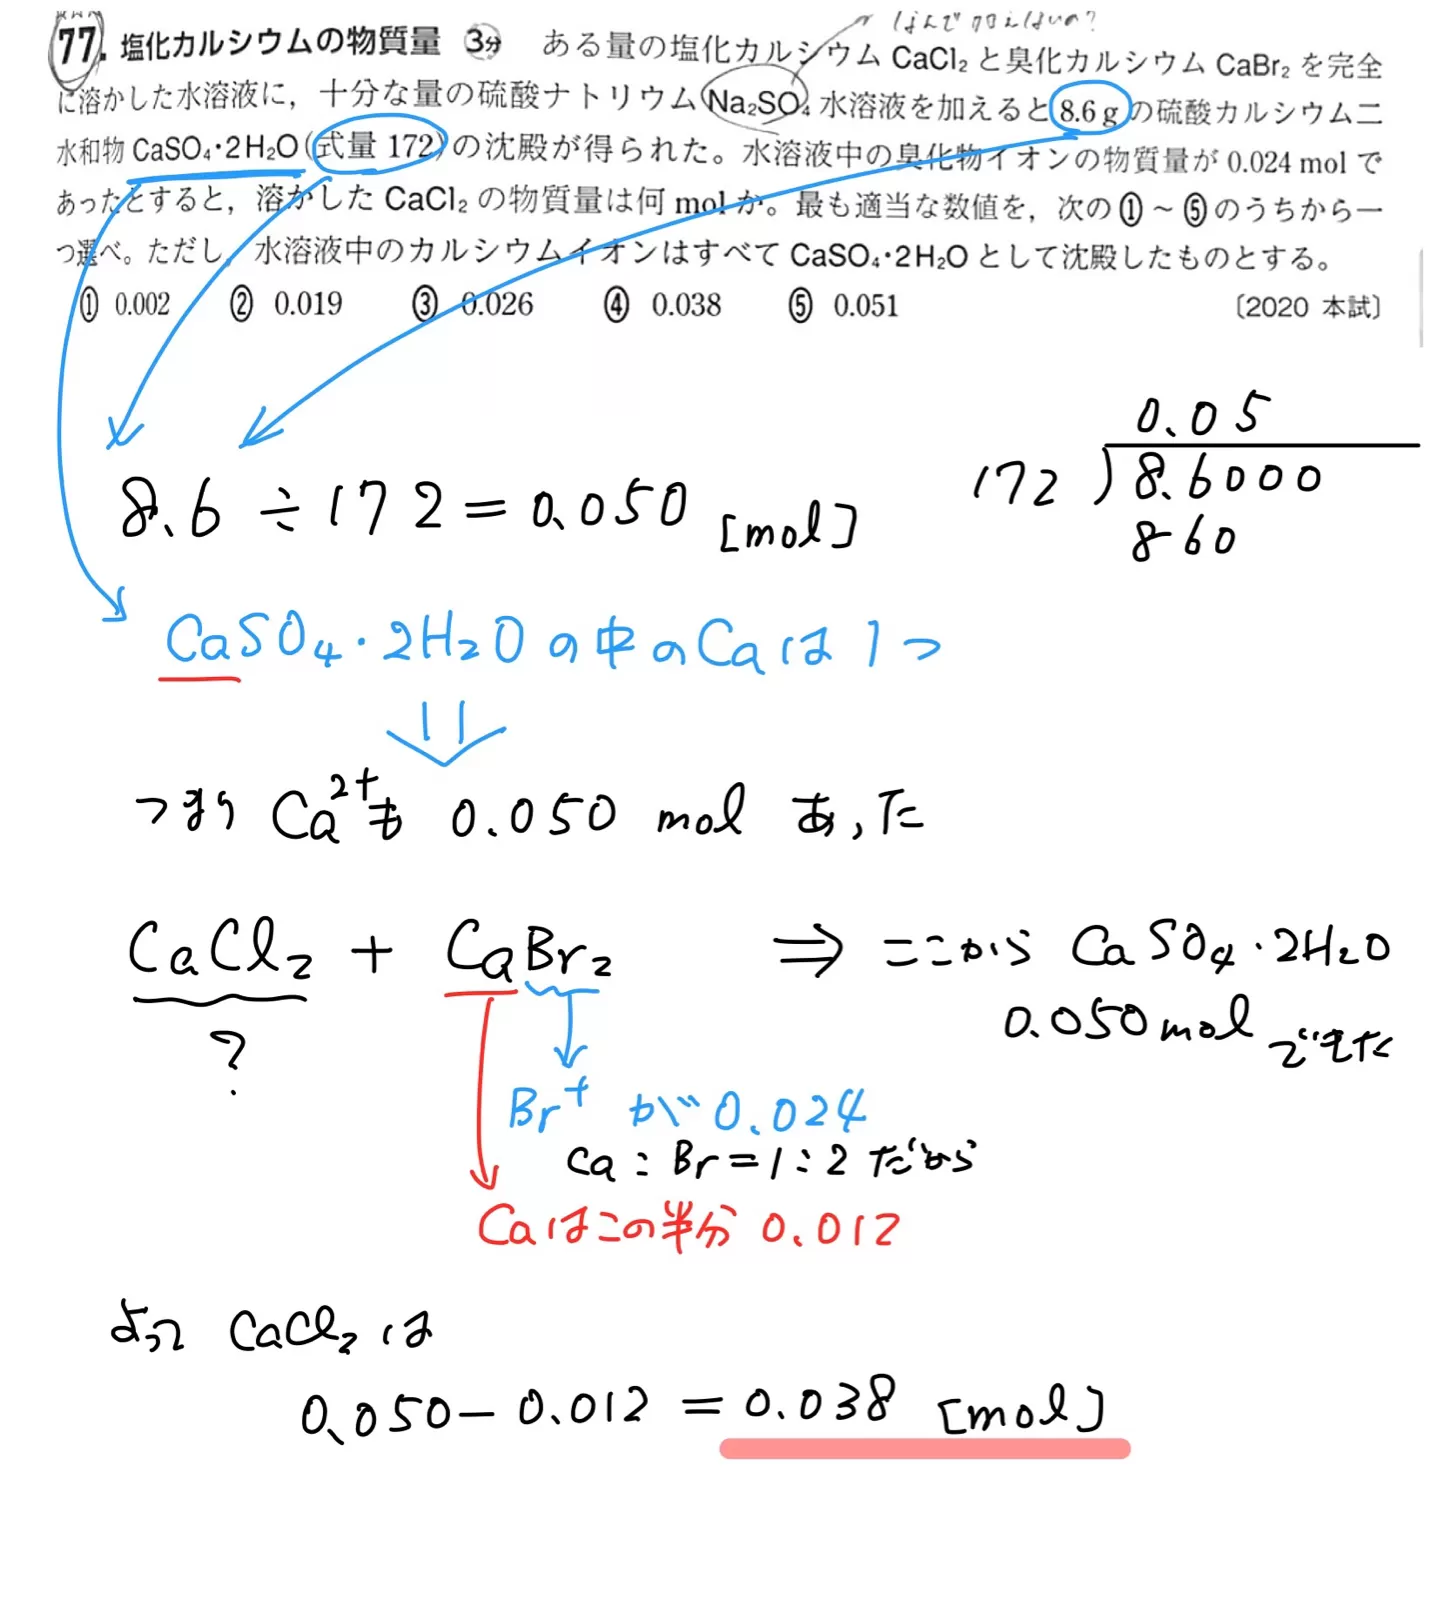 なんで加えないの?
77. 塩化カルシウムの物質量 3分 ある量の塩化カルシウム CaCl₂ と臭化カルシウム CaBr₂ を完全
に溶かした水溶液に，十分な量の硫酸ナトリウム Na₂SO₄ 水溶液を加えると 8.6 g の硫酸カルシウム二
水和物 CaSO₄・2H₂O(式量 172)の沈殿が得られた。水溶液中の臭化物イオンの物質量が 0.024 mol で
あったとすると，溶かした CaCl₂ の物質量は何 mol か。最も適当な数値を，次の①～⑤のうちから一
つ選べ。ただし，水溶液中のカルシウムイオンはすべて CaSO₄・2H₂O として沈殿したものとする。
① 0.002 ② 0.019 ③ 0.026 ④ 0.038 ⑤ 0.051 〔2020 本試〕
0.05
172 ) 8.6000
860
8.6 ÷ 172 = 0.050 [mol]
CaSO₄・2H₂O の中の Ca は 1つ
つまり Ca²⁺も 0.050 mol あった
CaCl₂ + CaBr₂ ⇒ ここから CaSO₄・2H₂O
0.050 mol できた
?
Br⁺ が 0.024
Ca : Br = 1 : 2 だから
Caはこの半分 0.012
よって CaCl₂ は
0.050 − 0.012 = 0.038 [mol]